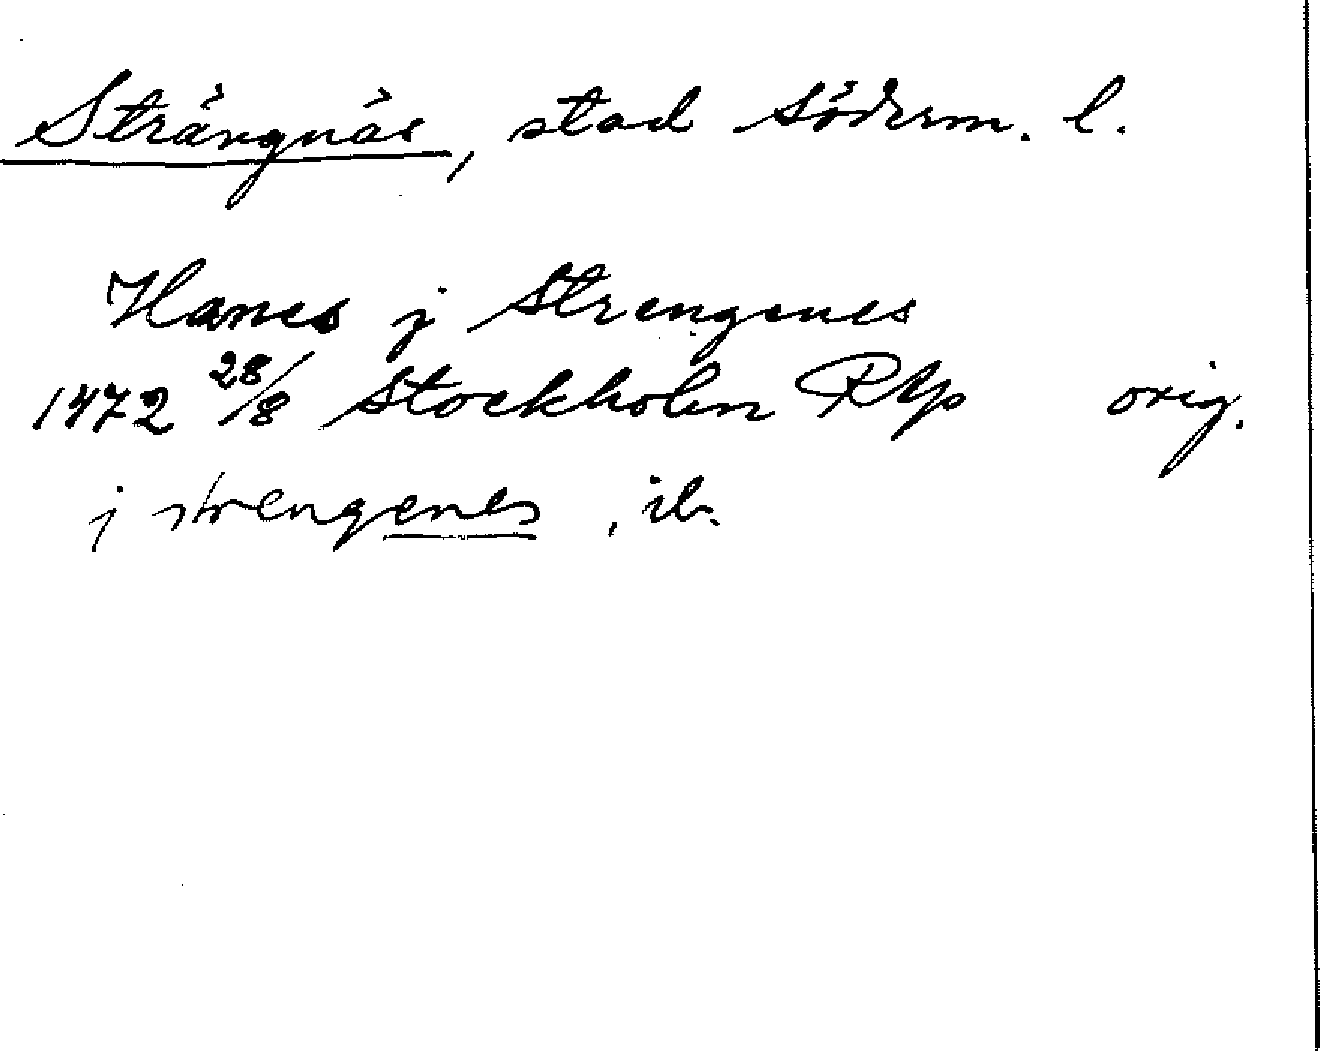 Strängnäs, stad Söderm. l.
Hanes j Strengenes
1472 28/8 Stockholm RAp orig.
j strengenes, ib.